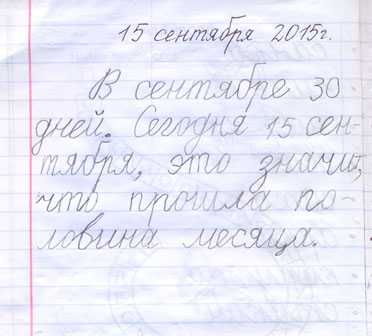 15 сентября 2015г.
В сентябре 30
дней. Сегодня 15 сен-
тября, это значит,
что прошла по-
ловина месяца.